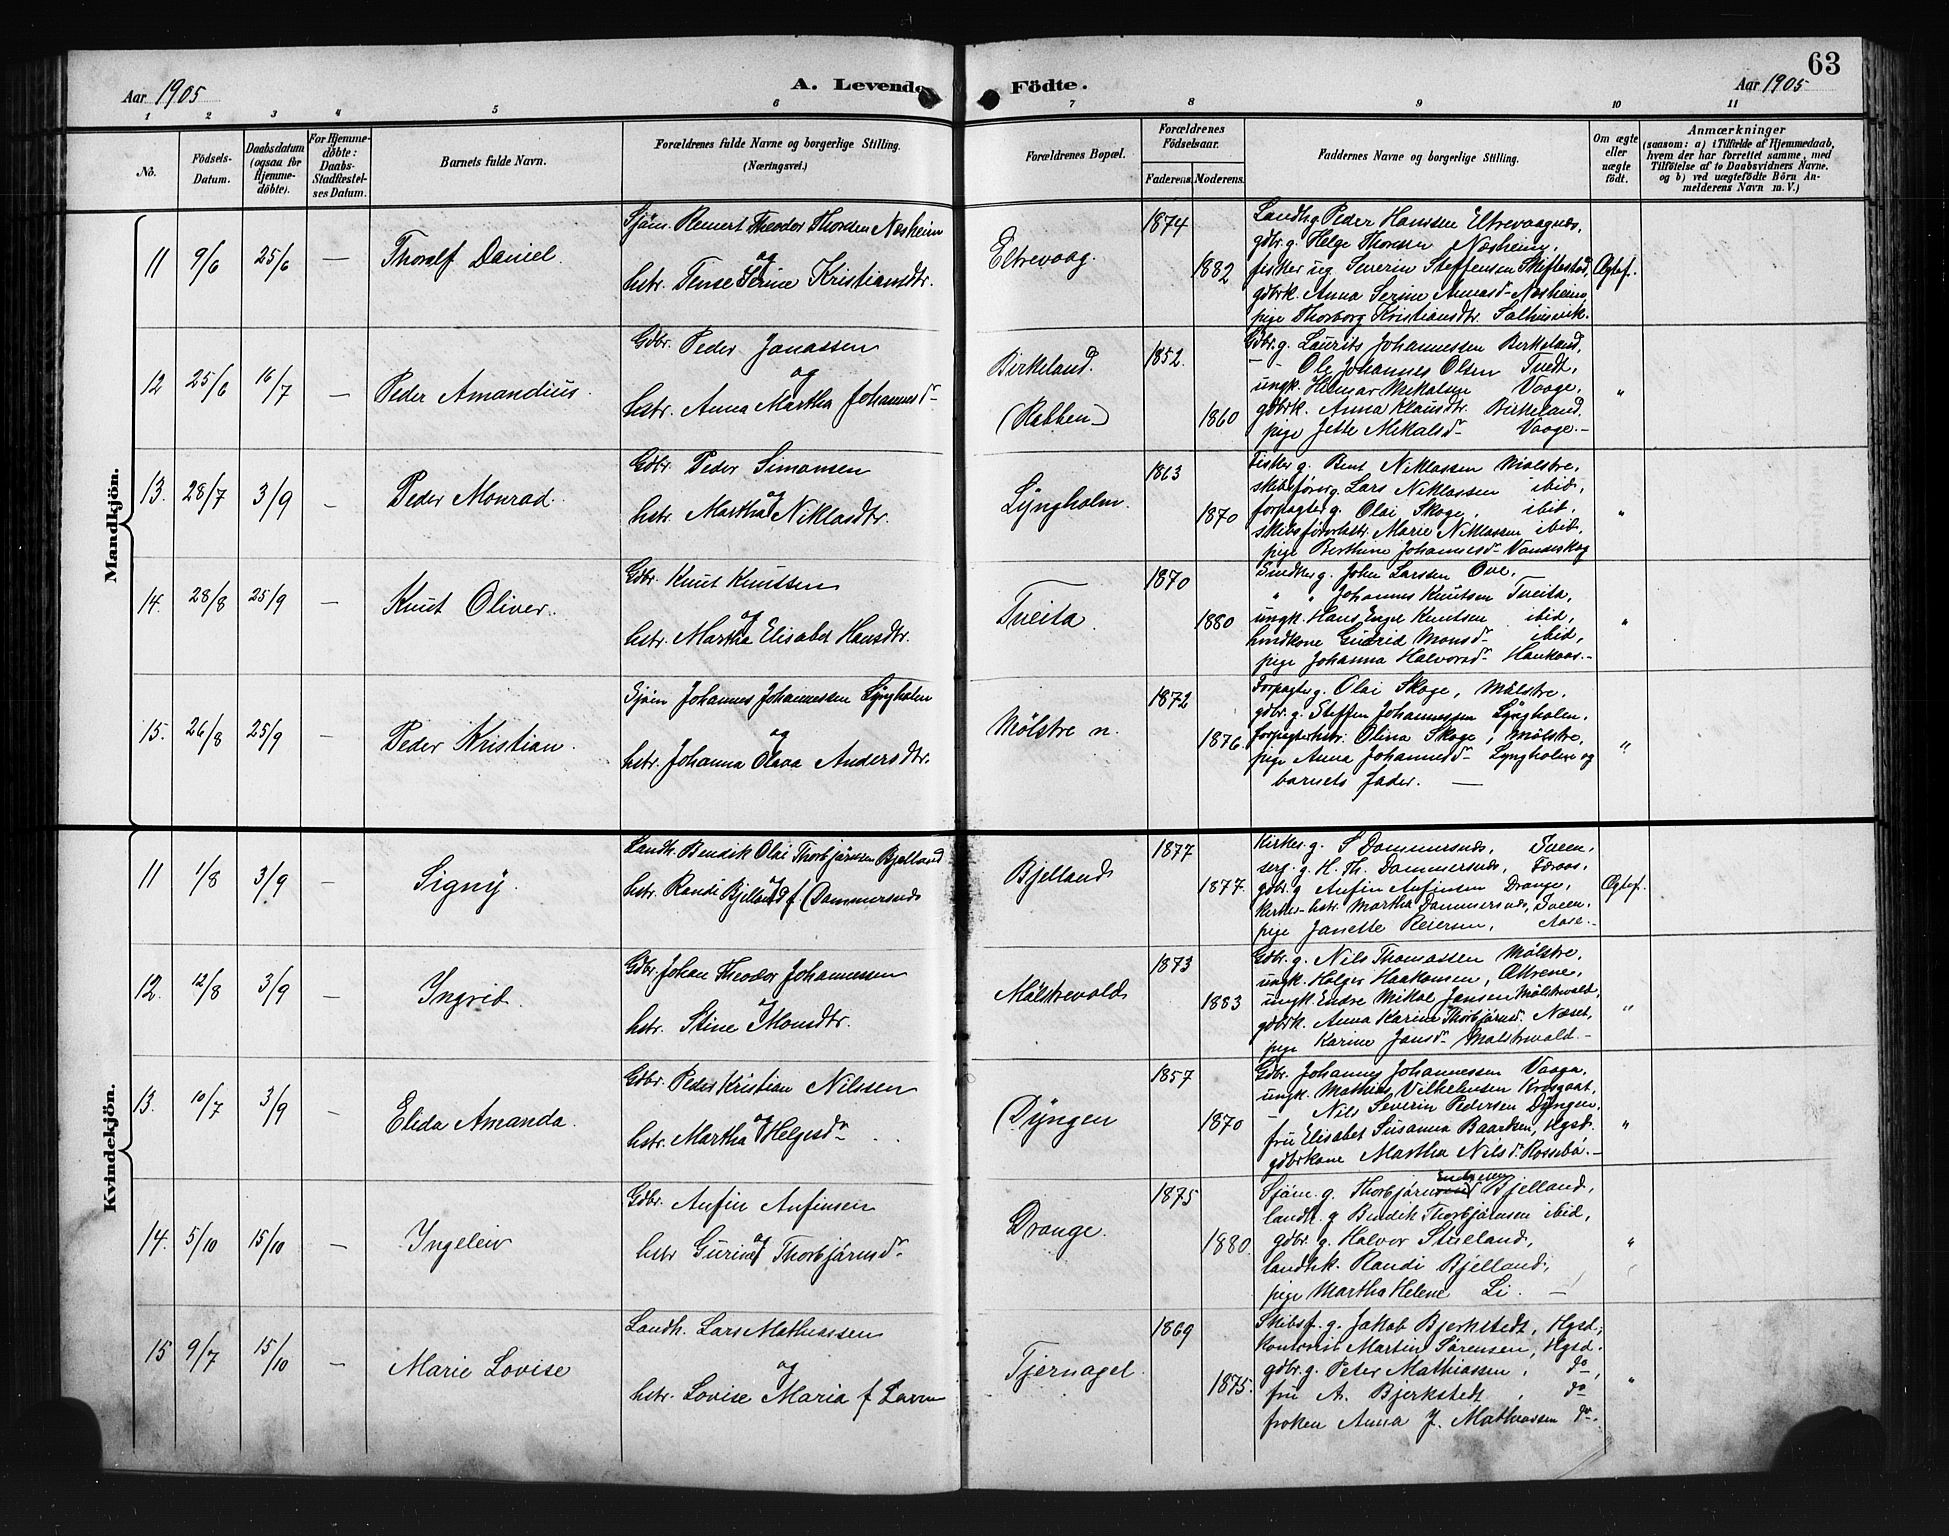 63
Aar 1905
A. Levende
Födte.
Aar 1905
1 2 3 4 5 6 7 8 9 10 11
No.
Födsels-Datum.
Daabsdatum (ogsaa for Hjemme-döbte).
For Hjemme-döbte: Daabs-Stadfæstel-ses Datum.
Barnets fulde Navn.
Forældrenes fulde Navne og borgerlige Stilling.
(Næringsvei.)
Forældrenes Bopæl.
Forældrenes Födselsaar.
Faderens. Moderens.
Faddernes Navne og borgerlige Stilling.
Om ægte eller uægte födt.
Anmærkninger
(saasom: a) i Tilfælde af Hjemmedaab,
hvem der har forrettet samme, med
Tilföielse af to Daabsvidners Navne.
og b) ved uægtefödte Börn An-
melderens Navn m. V.)
Mandkjön.
11 9/6 25/6 — Thoralf Daniel.
Sjöm. Remert Theodor Thorsen Næsheim
og
hstr. Tense Serine Kristiansdtr.
Eltrevaag.
1874
1882
Landh. g. Peder Hanssen Eltrevaagnæs,
gdbr. g. Helge Thorsen Næsheim,
fisker ug. Severin Steffensen Skiftestad,
gdbrk. Anna Serine Næsheim,
pige Thorborg Kristiansdtr. Salhusvik.
Ægtef.
12 25/6 16/7 — Peder Amandius.
Gdbr. Peder Jonassen
og
hstr. Anna Martha Johannesdr
Birkeland.
(Rabben)
1852.
1860
Gdbr. g. Laurits Johannessen Birkeland,
— Ole Johannes Olsen Tvedt,
ungk. Hilmar Mikalsen Vaage,
gdbrk. Anna Klausdtr. Birkeland,
pige Jette Mikalsdr Vaage.—
"
13. 28/7 3/9 — Peder Monrad.
Gdbr. Peder Simonsen
og
hstr. Martha Niklasdtr.
Lyngholm.
1863
1870
Fisker g. Bent Niklassen Mölstre,
skibsförer g. Lars Niklassen ibid,
forpagter g. Olai Skoge, ibid.
skibsförerhstr. Marie Niklassen ibid.
pige Berthine Johannesdr Vandeskog
"
14. 28/8 25/9 — Knut Oliver.
Gdbr. Knut Knutsen
og
hstr. Martha Elisabet Hansdtr.
Tveita
1870
1880
g. John Larssen Ove,
" " Johannes Knutsen Tveita,
ungk. Hans Engel Knutsen ibid,
Gudrid Monsdr ibid,
pige Johanna Halvorsdr Haukaas.—
"
15. 26/8 25/9 — Peder Kristian.
Sjöm Johannes Johannessen Lyngholm
og
hstr. Johanna Olava Andersdtr.
Mölstre n.
1872
1876.
Forpagter g. Olai Skoge, Mölstre,
gdbr. g. Steffen Johannessen Lyngholm,
forpagterhstr. Olina Skoge, Mölstre,
pige Anna Johannesdr Lyngholm og
barnets fader. —
"
Kvindekjön.
11 1/8 3/9 — Signy.
Landh. Bendik Olai Thorbjörnsen Bjelland
og
hstr. Randi Bjelland f. (Dommersnæs
Bjelland
1877
1877.
Kirkes. g. S Dommersnæs, Tveen,
serg. g. H. Th. Dommersnæs,
gdbr. g Anfin Anfinsen Drange,
Kirkes-hstr. Martha Dommersnæs, Tveen,
pige Janette Reiersen, Aase.—
Ægtef.
12. 12/8 3/9 — Ingrid.
Gdbr. Johan Theodor Johannessen
og
hstr. Stine Monsdtr.
Mölstrevold
1873
1883
Gdbr. g. Nils Thomassen Mölstre,
ungk. Holger Haakonsen,
ungk. Endre Mikal Jansen Mölstrevold,
gdbrk. Anna Karina Thorbjörnsdr Næset,
pige Karine Jansdr Mölstrevold.—
"
13. 10/7 3/9 — Elida Amanda.
Gdbr. Peder Kristian Nilssen
og
hstr. Martha Helgesdr
(Dyngen
1857
1870
Gdbr. Johannes Johannessen Vaage,
ungk. Mathias Vilhelmsen
— Nils Severin Pedersen Dyngen,
fru Elisabet Susanna Baardsen, Hgsd.
gdbrkone Martha Nilsdr Rossebö.—
"
14. 5/10 15/10 — Ingeleiv
Gdbr. Anfin Anfinsen
og
hstr Gurine Thorbjörnsdr
Drange.
1875
1880.
Sjöm. g. Thorbjörn Bjelland,
landh. g Bendik Thorbjörnsen ibid,
gdbr. g. Halvor Stueland,
landhk. Randi Bjelland,
pige Martha Helene Li. —
"
15 9/7 15/10 — Marie Lovise
Landh. Lars Mathiassen
og
hstr. Lovise Maria f Larsen
Tjernagel.
1869
1875.
Skibsf. g. Jakob Bjerkstedt, Hgsd.,
Kontorist Martin Sörensen, Hgsd.
gdbr. g. Peter Mathiassen, do,
fru A. Bjerkstedt, do
fröken Anna J. Mathiassen do.
"